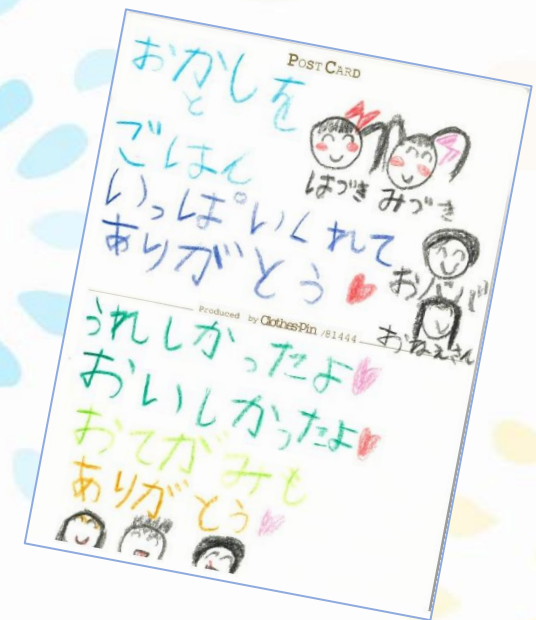 POST CARD
おかしを
と
ごはん
いっぱいくれて
ありがとう
はづき みづき
おねえさん
Produced by Clothes-Pin /81444
うれしかったよ
おいしかったよ
おてがみも
ありがとう